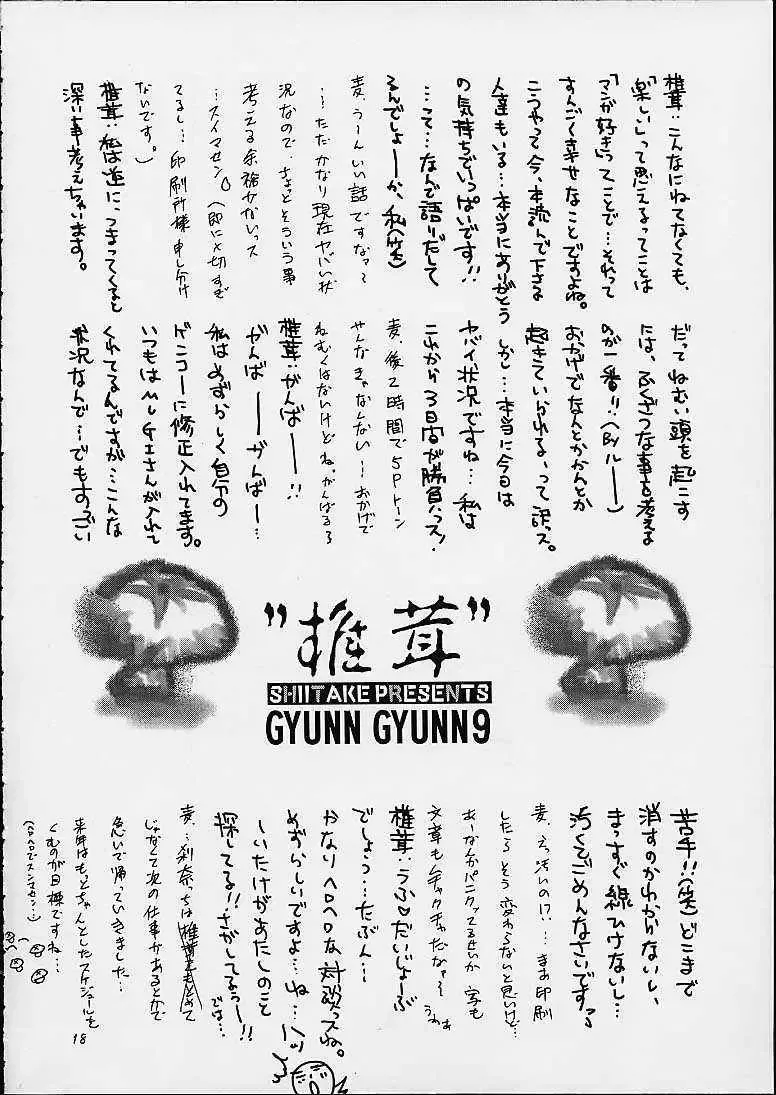 椎茸:こんなにねてなくても、
「楽しい」って思えるってことは
「マンガ好き」ってことで…それって
すんごく幸せなことですよね。
こうやって今、本読んで下さる
人達もいる…本当にありがとう
の気持ちでいっぱいです!!
…って…なんで語りだして
るんでしょーか、私(笑)
麦:うーんいい話ですなァ~
…ただかなり現在ヤバい状
況なので、ちょっとそういう事
考える余裕がないっス
…スイマセン♡(即に×切すぎ
てるし…印刷所様申し分け
ないです。)
椎茸:私は逆に、つまってくると
深い事考えちゃいます。
だってねむい頭を起こす
には、ふくざつな事を考える
のが一番!!(ダルーー)
おかげでなんとかかんとか
起きていられる、って訳っス。
しかし…本当に今日は
ヤバイ状況ですね…私は
これから3日間が勝負っス!
麦:後2時間で5Pトーン
やんなきゃなんない…おかげで
ねむくはないけどね、がんばるよ
椎茸:がんばーーー!!
がんばーーがんばー…
私はめずらしく自分の
ゲンコーに修正入れてます。
いつもはMUGIさんが入れて
くれてるんですが…こんな
状況なんで…でもすっごい
"椎茸"
SHIITAKE PRESENTS
GYUNN GYUNN9
苦手!!(笑)どこまで
消すのかわからないし、
まっすぐ線ひけないし…
汚くてごめんなさいです~
麦:えっ汚いの!?…まあ印刷
したらそう変わらないと思いけど…
あーなんかパニクッてるせいか字も
文章もムチャクチャだなァ~
うわぁ
椎茸:うふ♡だいじょーぶ
でしょう…たぶん…
かなりヘロヘロな対談っスね。
めずらしいですよ…ね…ハッ
しいたけがあたしのこと
探してる!!さがしてるぅー!!
では…
麦:…刹奈っちは椎茸をもとめて
じゃなくて次の仕事があるとかで
急いで帰っていきました…
来年はもっとちゃんとしたスケジュールを
くむのが目標ですね…
(ヘロヘロでスンマセン…)
18